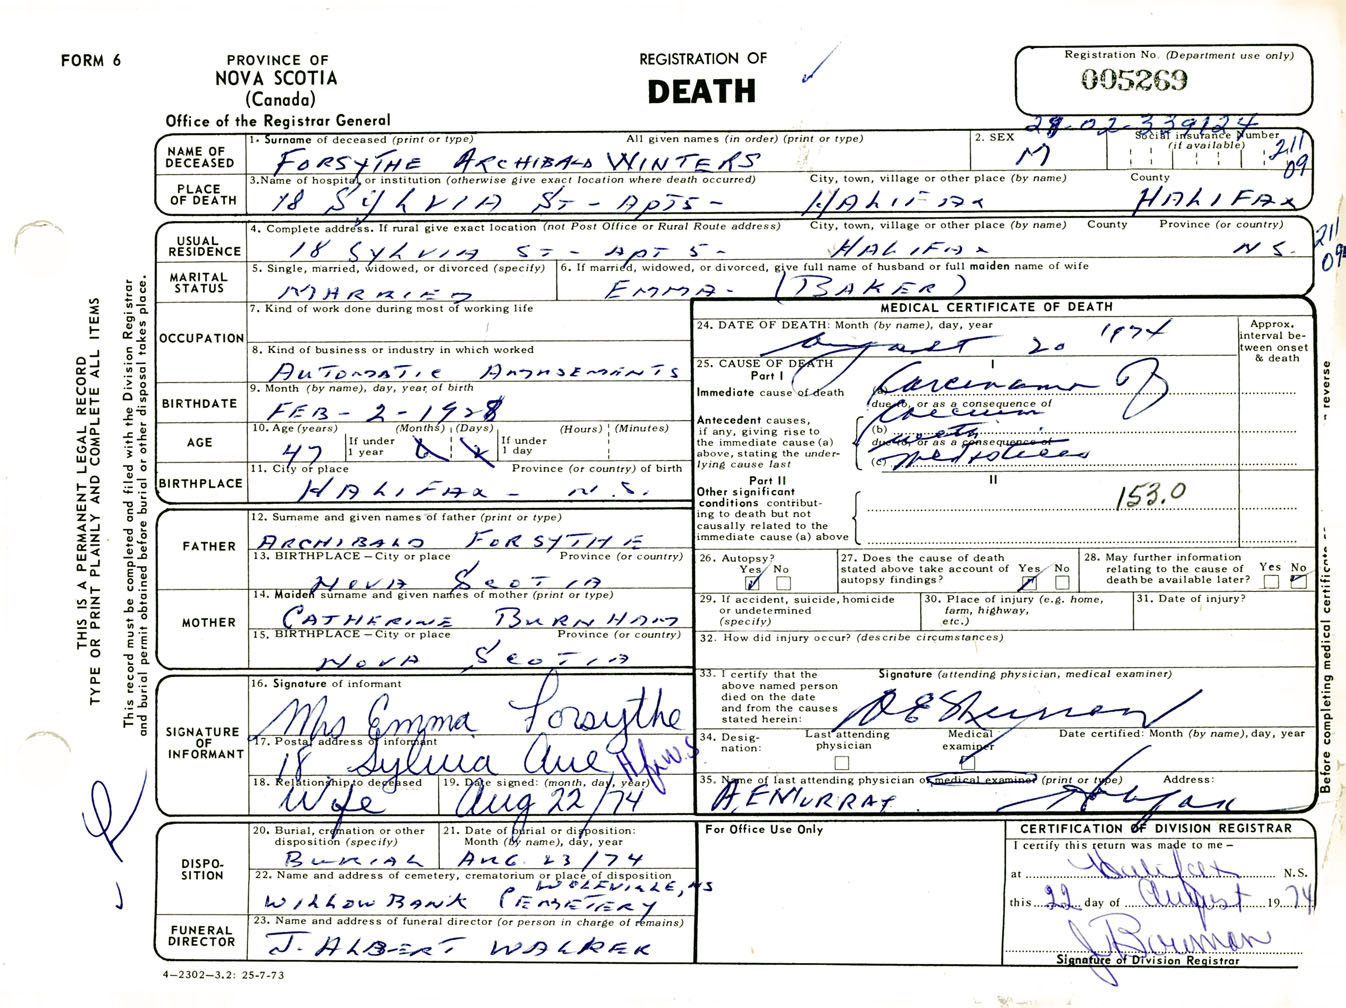 FORM 6
PROVINCE OF
NOVA SCOTIA
(Canada)
Office of the Registrar General
REGISTRATION OF
DEATH
Registration No. (Department use only)
005269
THIS IS A PERMANENT LEGAL RECORD
TYPE OR PRINT PLAINLY AND COMPLETE ALL ITEMS
This record must be completed and filed with the Division Registrar
and burial permit obtained before burial or other disposal takes place.
NAME OF DECEASED
1. Surname of deceased (print or type) All given names (in order) (print or type)
FORSYTHE ARCHIBALD WINTERS
2. SEX
M
Social insurance Number
(if available)
211
09
PLACE OF DEATH
3. Name of hospital or institution (otherwise give exact location where death occurred) City, town, village or other place (by name) County
18 SYLVIA ST - APT5 - HALIFAX HALIFAX
USUAL RESIDENCE
4. Complete address. If rural give exact location (not Post Office or Rural Route address) City, town, village or other place (by name) County Province (or country)
18 SYLVIA ST - APT 5 - HALIFAX N S.
211
09
MARITAL STATUS
5. Single, married, widowed, or divorced (specify)
MARRIED
6. If married, widowed, or divorced, give full name of husband or full maiden name of wife
EMMA - (BAKER)
OCCUPATION
7. Kind of work done during most of working life
8. Kind of business or industry in which worked
AUTOMATIC AMUSEMENTS
BIRTHDATE
9. Month (by name), day, year, of birth
FEB - 2 - 1928
AGE
10. Age (years) (Months) (Days) (Hours) (Minutes)
47
If under 1 year
If under 1 day
BIRTHPLACE
11. City or place Province (or country) of birth
HALIFAX - N.S.
FATHER
12. Surname and given names of father (print or type)
ARCHIBALD FORSYTHE
13. BIRTHPLACE - City or place Province (or country)
NOVA SCOTIA
MOTHER
14. Maiden surname and given names of mother (print or type)
CATHERINE BURNHAM
15. BIRTHPLACE - City or place Province (or country)
NOVA SCOTIA
SIGNATURE OF INFORMANT
16. Signature of informant
Mrs Emma Forsythe
17. Postal address of informant
18 Sylvia Ave, Hfx N.S.
18. Relationship to deceased
Wife
19. Date signed: (month, day, year)
Aug 22/74
DISPOSITION
20. Burial, cremation or other disposition (specify)
BURIAL
21. Date of burial or disposition: Month (by name), day, year
AUG. 23/74
22. Name and address of cemetery, crematorium or place of disposition
WOLFVILLE, NS
WILLOW BANK CEMETERY
FUNERAL DIRECTOR
23. Name and address of funeral director (or person in charge of remains)
J. ALBERT WALKER
4-2302-3.2: 25-7-73
MEDICAL CERTIFICATE OF DEATH
24. DATE OF DEATH: Month (by name), day, year
August 20 1974
Approx. interval between onset & death
25. CAUSE OF DEATH
Part I
I
Immediate cause of death
(a) Carcinoma of
due to, or as a consequence of
Antecedent causes, if any, giving rise to the immediate cause (a) above, stating the underlying cause last
Caecum
(b) with
due to, or as a consequence of
(c)
Part II
II
Other significant conditions contributing to death but not causally related to the immediate cause (a) above
153.0
26. Autopsy?
Yes No
27. Does the cause of death stated above take account of autopsy findings?
Yes No
28. May further information relating to the cause of death be available later?
Yes No
29. If accident, suicide, homicide or undetermined (specify)
30. Place of injury (e.g. home, farm, highway, etc.)
31. Date of injury?
32. How did injury occur? (describe circumstances)
33. I certify that the above named person died on the date and from the causes stated herein:
Signature (attending physician, medical examiner)
34. Designation:
Last attending physician
Medical examiner
Date certified: Month (by name), day, year
35. Name of last attending physician or medical examiner (print or type) Address:
A.E MURRAY Halifax
For Office Use Only
CERTIFICATION OF DIVISION REGISTRAR
I certify this return was made to me -
at Halifax N.S.
this 22 day of August 1974
J Bowman
Signature of Division Registrar
Before completing medical certificate
- reverse